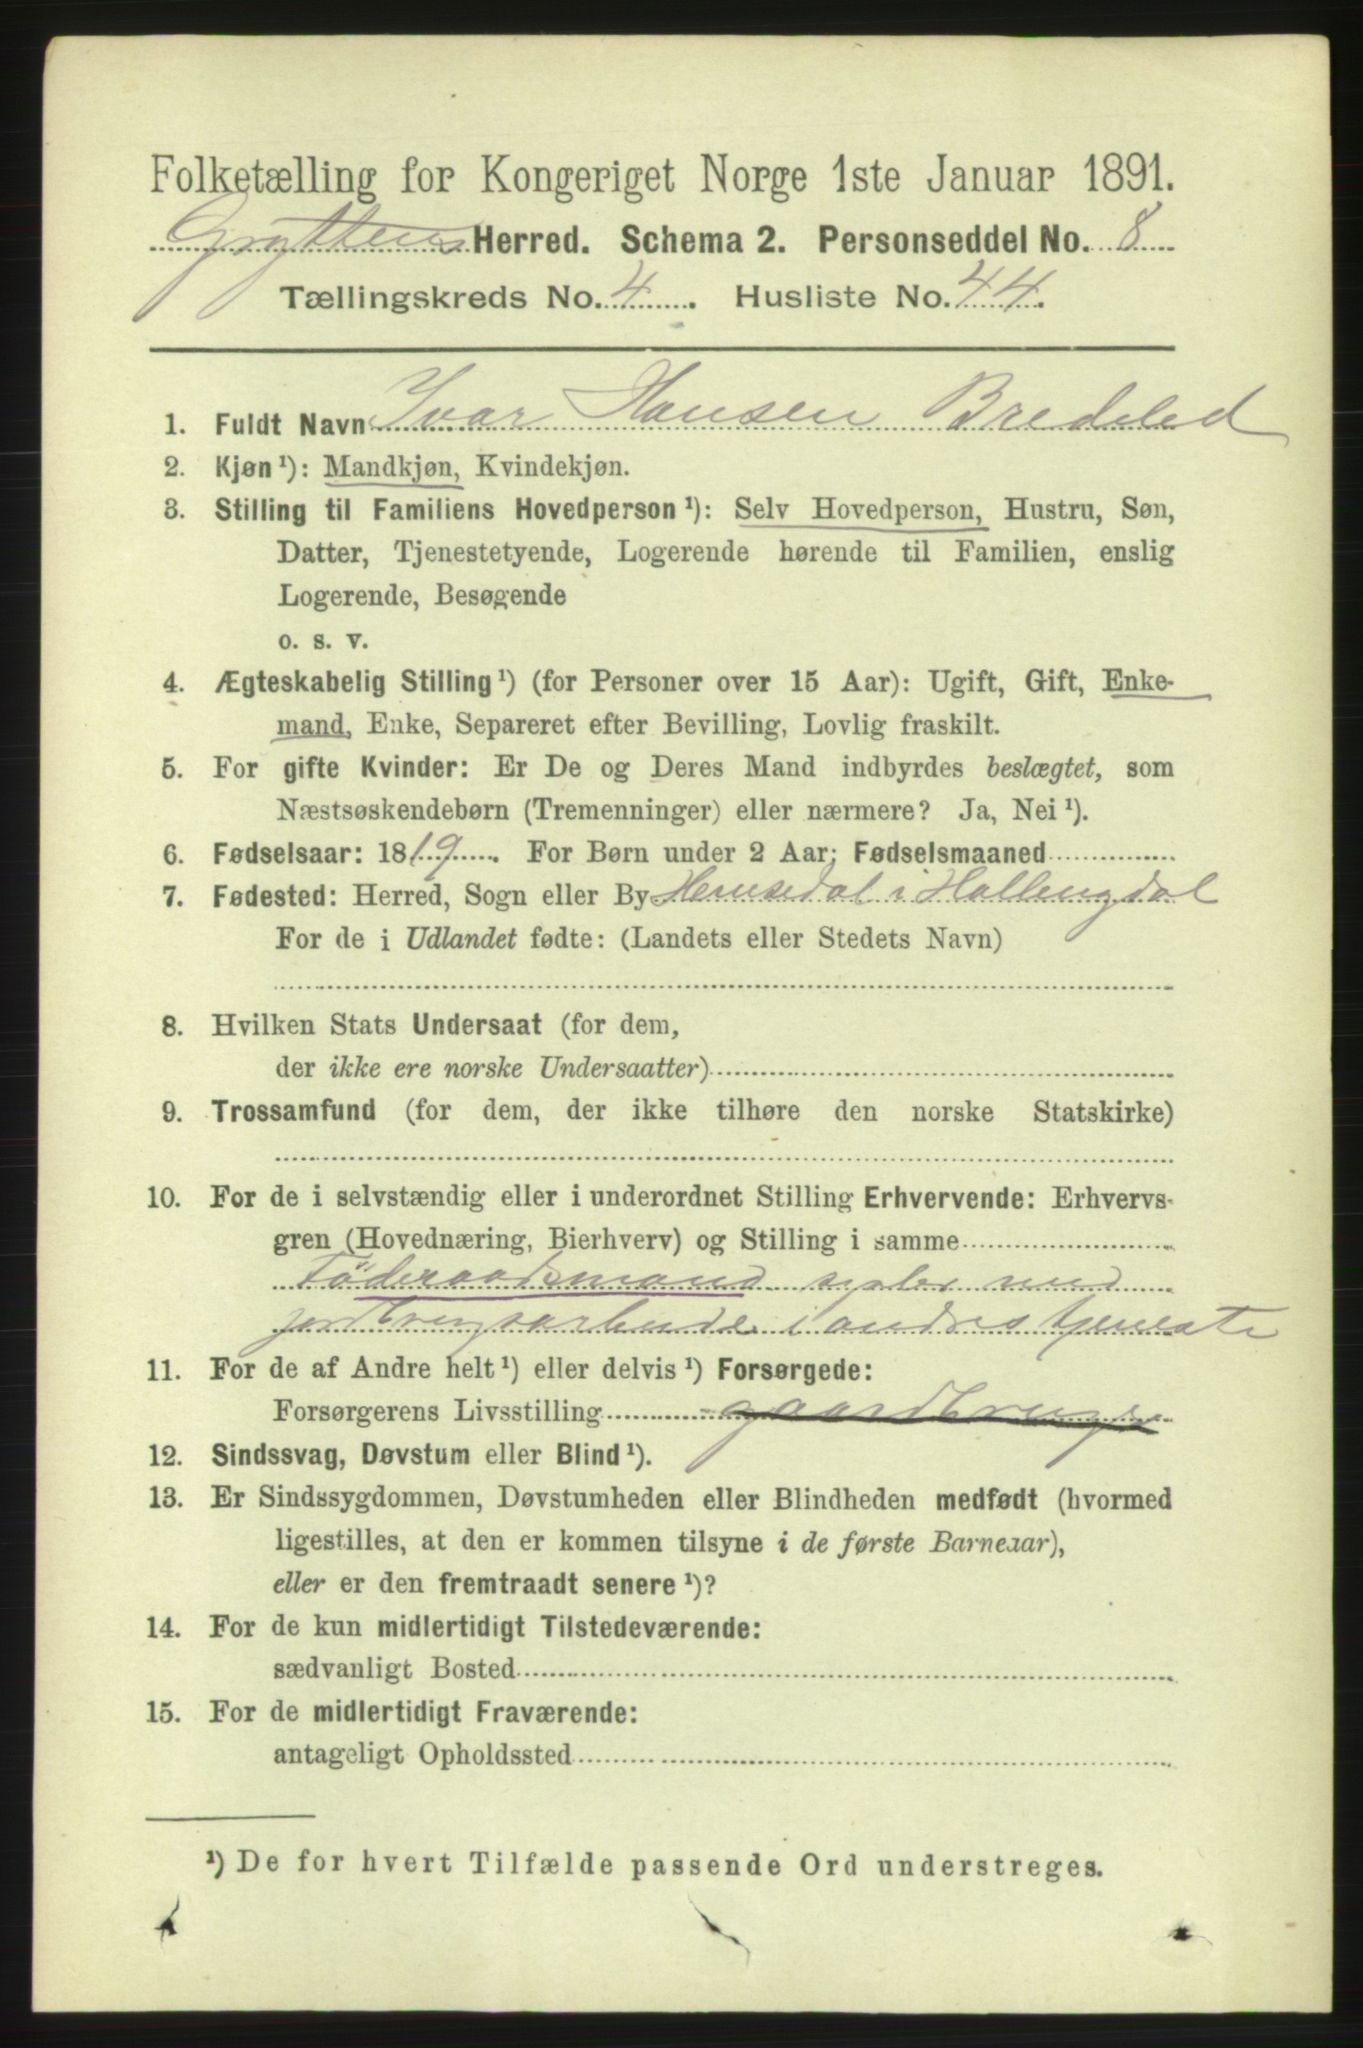 Folketælling for Kongeriget Norge 1ste Januar 1891.
Gryttens Herred. Schema 2. Personseddel No. 8
Tællingskreds No. 4. Husliste No. 44.
1. Fuldt Navn Ivar Hansen Bredeled
2. Kjøn¹): Mandkjøn, Kvindekjøn.
3. Stilling til Familiens Hovedperson¹): Selv Hovedperson, Hustru, Søn,
Datter, Tjenestetyende, Logerende hørende til Familien, enslig
Logerende, Besøgende
o. s. v.
4. Ægteskabelig Stilling¹) (for Personer over 15 Aar): Ugift, Gift, Enke-
mand, Enke, Separeret efter Bevilling, Lovlig fraskilt.
5. For gifte Kvinder: Er De og Deres Mand indbyrdes beslægtet, som
Næstsøskendebørn (Tremenninger) eller nærmere? Ja, Nei¹).
6. Fødselsaar: 1819. For Børn under 2 Aar: Fødselsmaaned
7. Fødested: Herred, Sogn eller By Hemsedal i Hallingdal
For de i Udlandet fødte: (Landets eller Stedets Navn)
8. Hvilken Stats Undersaat (for dem,
der ikke ere norske Undersaatter)
9. Trossamfund (for dem, der ikke tilhøre den norske Statskirke)
10. For de i selvstændig eller i underordnet Stilling Erhvervende: Erhvervs-
gren (Hovednæring, Bierhverv) og Stilling i samme
Föderaadsmand sysler med
jordbrugsarbeide i andres tjeneste
11. For de af Andre helt¹) eller delvis¹) Forsørgede:
Forsørgerens Livsstilling gaardbruger
12. Sindssvag, Døvstum eller Blind¹).
13. Er Sindssygdommen, Døvstumheden eller Blindheden medfødt (hvormed
ligestilles, at den er kommen tilsyne i de første Barneaar),
eller er den fremtraadt senere¹)?
14. For de kun midlertidigt Tilstedeværende:
sædvanligt Bosted
15. For de midlertidigt Fraværende:
antageligt Opholdssted
¹) De for hvert Tilfælde passende Ord understreges.